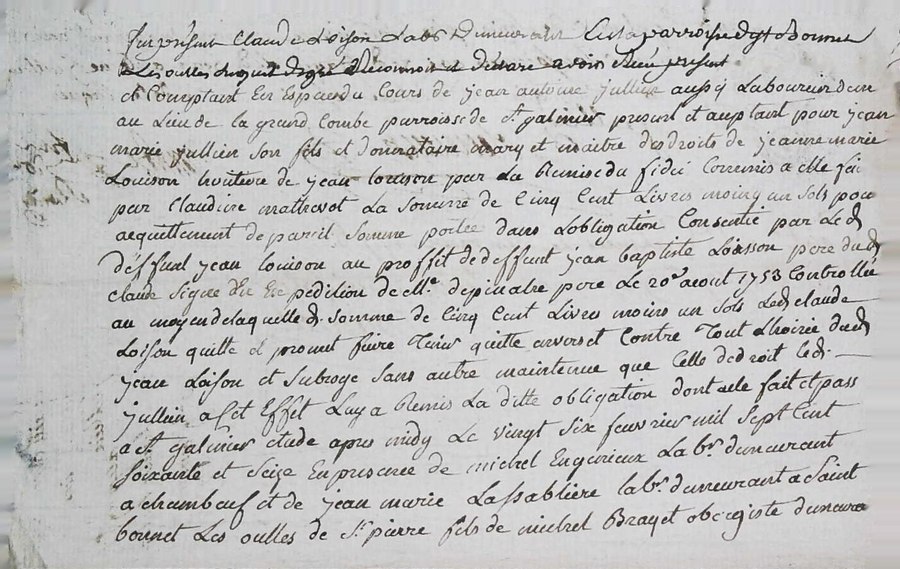 fut présent Claude Loison Labr Demeurant En la parroisse de st Bonnet
Les oulles lequel de gré Reconnoit et déclare avoir Reçu présent
et Comptant En Espece du Cours de jean antoine jullien aussy Laboureur dem
au Lieu de la grand Combe parroisse de st galmier present et acceptant pour jean
marie jullien son fils et donnataire mary et maitre des droits de jeanne marie
Louison heritiere de jean Louison par La Remise du fidei Commis a elle fai
par Claudine mathevot La somme de Cinq Cent Livres moins un sols pour
acquittement de pareil somme portée dans Lobligation Consentie par Le d
deffunt jean Louison au proffit de deffunt jean baptiste Loisson pere du d
claude signée En Expedition de Me depinalre pere Le 20e aout 1753 Controllée
au moyen de laquelle d. somme de Cinq Cent Livres moins un sols Led claude
Loison quitte et promet faire Tenir quitte envers et Contre Tout Lhoirie du d
jean Loison et subroge sans autre maintenue que Celle de droit le d.
jullien a Cet Effet Luy a Remis La ditte obligation dont acte fait et pass
a st galmier etude apres midy Le vingt six fevrier mil sept Cent
soixante et seize En presence de michel Engerieux Labr. demeurant
a chambeuf et de jean marie Lassabliere labr. demeurant a saint
bonnet Les oulles de st pierre fils de michel Brayet obergiste demeura